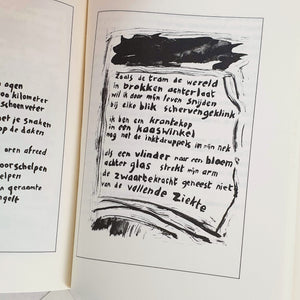 ogen
00 kilometer
schoenveter
et je snaken
op de daken
oren afreed
oorschelpen
elpen
n geraamte
ngelt
Zoals de tram de wereld
in brokken achterlaat
wil ik door mijn leven snijden
bij elke blik schervengeklink
ik ben een krantekop
in een kaaswinkel
nog nat de inktdruppels in mijn nek
als een vlinder naar een bloem
achter glas strekt mijn arm
de zwaartekracht geneest niet
van de vallende ziekte